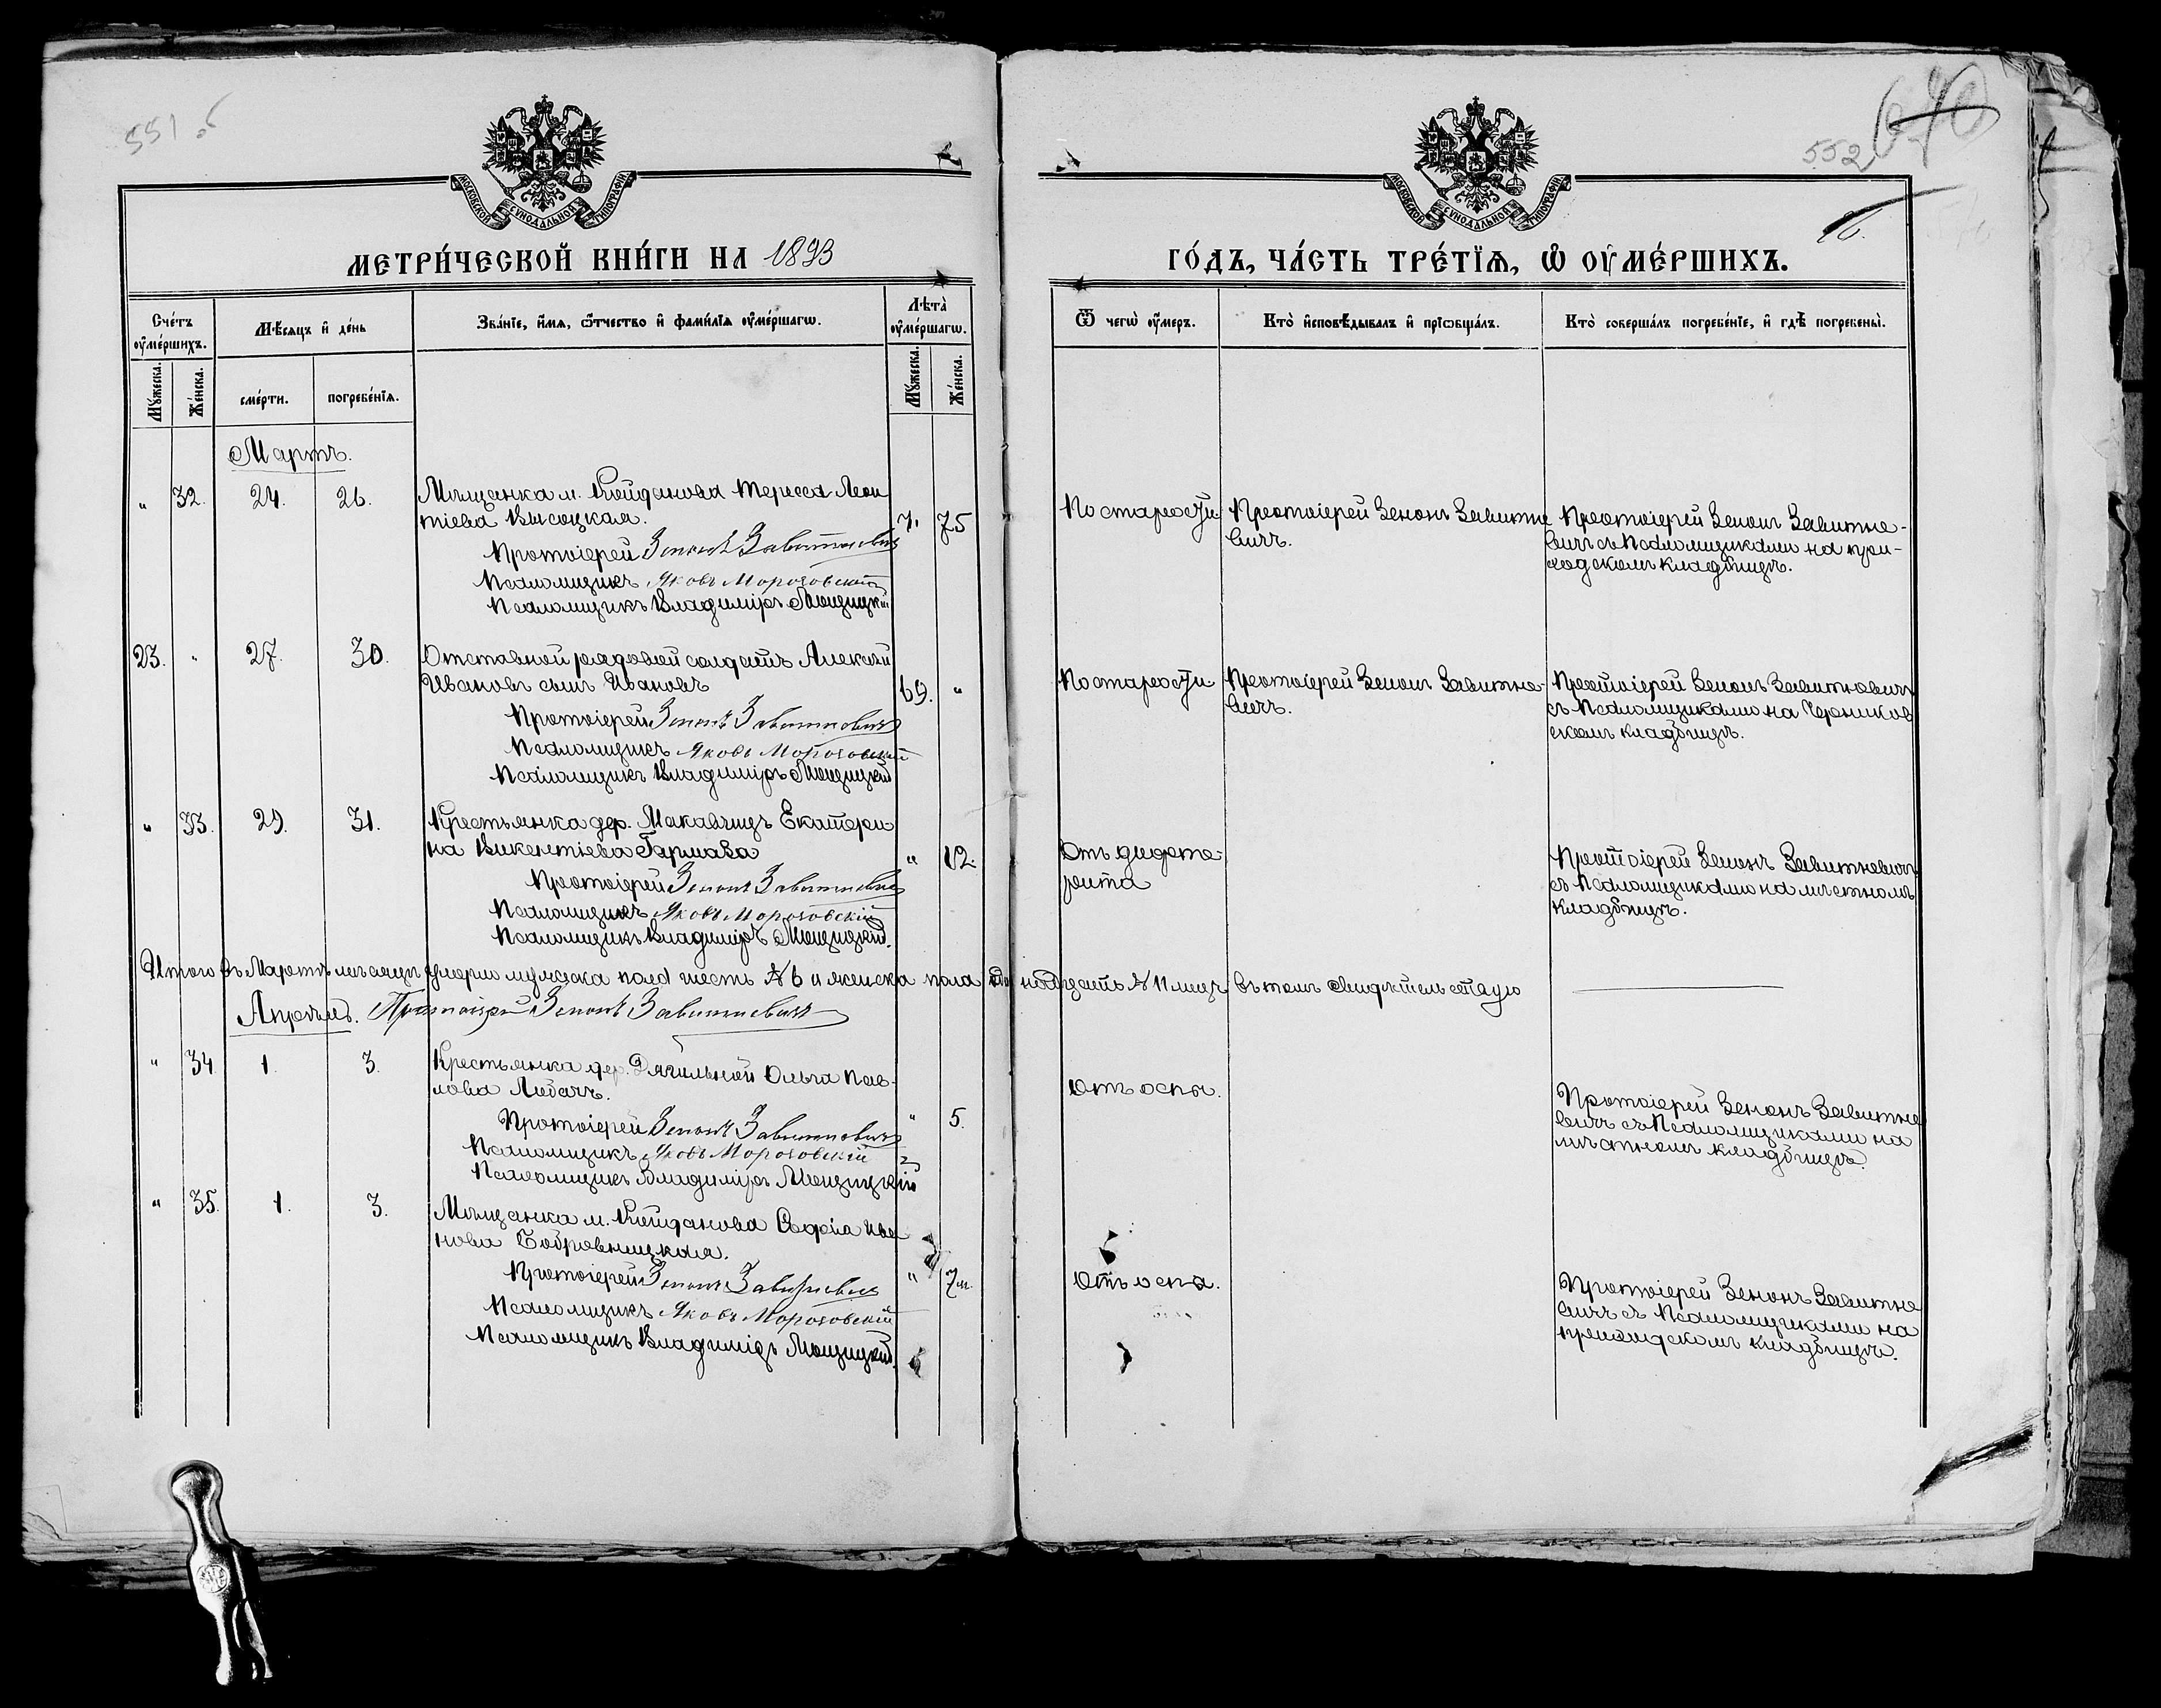 551 об
552
26.
МОСКОВСКОЙ СУНОДАЛЬНОЙ ТИПОГРАФІИ
МОСКОВСКОЙ СУНОДАЛЬНОЙ ТИПОГРАФІИ
МЕТРИ́ЧЕСКОЙ КНИ́ГИ НА 1893
ГО́ДЪ, ЧА́СТЬ ТРЕ́ТЇѦ, Ѡ҆ ОУ҆МЕ́РШИХЪ.
Сче́тъ оу҆ме́ршихъ.
Мѣ́сяцъ и҆ де́нь
Зва́нїе, и҆́мя, ѻ҆́тчество и҆ фами́лїя оу҆ме́ршагѡ.
Лѣта̀ оу҆ме́ршагѡ.
Ѿ чегѡ̀ оу҆́меръ.
Кто̀ и҆сповѣ́дывалъ и҆ прїѡбща́лъ.
Кто̀ соверша́лъ погребе́нїе, и҆ гдѣ̀ погребены̀.
Мꙋ́жеска.
Же́нска.
сме́рти.
погребе́нїя.
Мꙋ́жеска.
Же́нска.
Мартъ.
" 32. 24. 26. Мѣщанка м. Койданова Тереса Леон
тіева Высоцкая. 75
Протоіерей Зенонъ Завитневичъ
Псаломщикъ Яковъ Морозовскій
Псаломщикъ Владиміръ Мощицкій
По старости
Протоіерей Зенонъ Завитне
вичъ.
Протоіерей Зенонъ Завитне-
вичъ съ Псаломщиками на при-
ходскомъ кладбищѣ.
23. " 27. 30. Отставной рядовой солдатъ Алексѣй
Ивановъ сынъ Ивановъ 69. "
Протоіерей Зенонъ Завитневичъ
Псаломщикъ Яковъ Морозовскій
Псаломщикъ Владиміръ Мощицкій
По старости
Протоіерей Зенонъ Завитне-
вичъ.
Протоіерей Зенонъ Завитневичъ
съ Псаломщиками на Черников
скомъ кладбищѣ.
" 33. 29. 31. Крестьянка дер. Макавчицъ Екатери
на Викентіева Гармаза " 12.
Протоіерей Зенонъ Завитневичъ
Псаломщикъ Яковъ Морозовскій
Псаломщикъ Владиміръ Мощицкій.
Отъ дифте-
рита
Протоіерей Зенонъ Завитневичъ
съ Псаломщиками на мѣстномъ
кладбищѣ.
Итого въ Мартѣ мѣсяцѣ умерло мужеска пола шесть № 6 и женска пола одиннадцать № 11 лицъ въ томъ свидѣтельствую
Апрѣль. Протоіерей Зенонъ Завитневичъ
" 34 1. 3. Крестьянка дер. Дягильной Ольга Пав-
лова Лабачъ. " 5.
Протоіерей Зенонъ Завитневичъ
Псаломщикъ Яковъ Морозовскій
Псаломщикъ Владиміръ Мощицкій
Отъ оспы.
Протоіерей Зенонъ Завитне
вичъ съ Псаломщиками на
мѣстномъ кладбищѣ.
" 35. 1. 3. Мѣщанка м. Койданова Софія Ива
нова Бобровницкая. " 7 м.
Протоіерей Зенонъ Завитневичъ
Псаломщикъ Яковъ Морозовскій
Псаломщикъ Владиміръ Мощицкій.
Отъ оспа.
Протоіерей Зенонъ Завитне
вичъ съ Псаломщиками на
приходскомъ кладбищѣ.